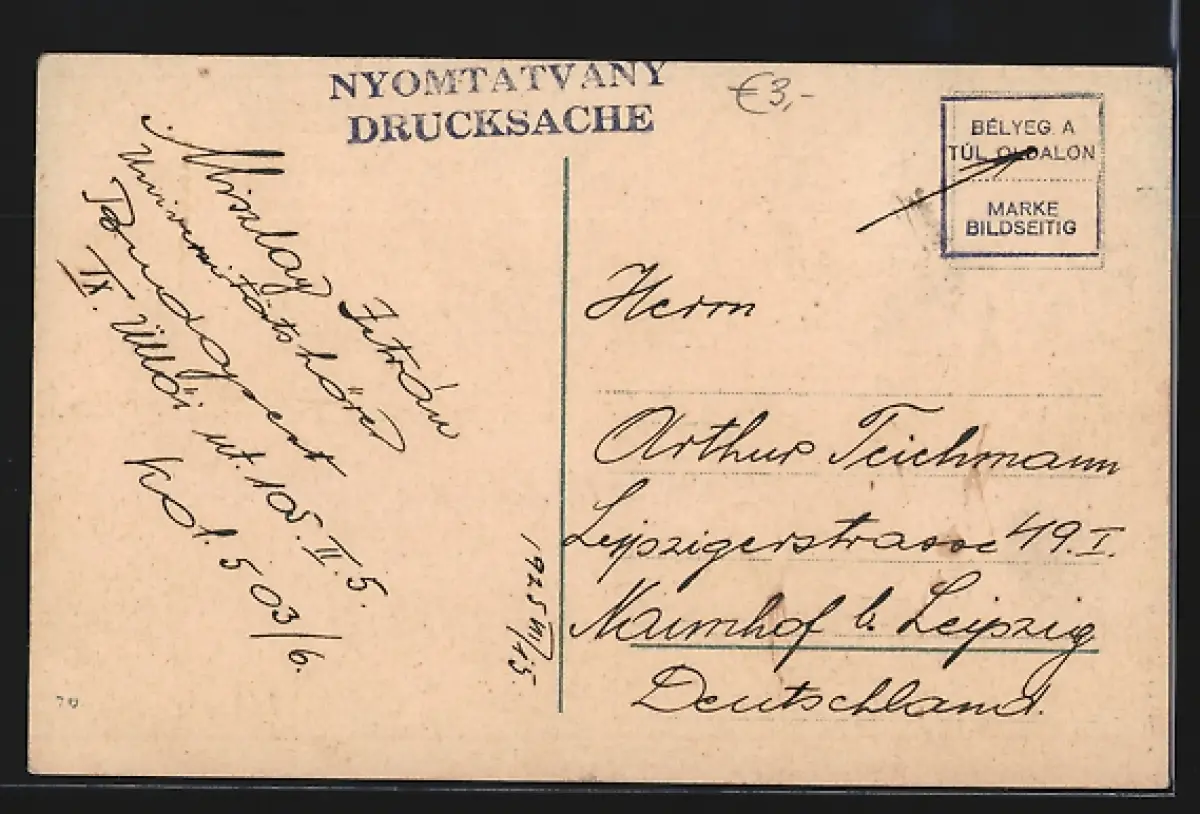 NYOMTATVÁNY
DRUCKSACHE
€3,-
BÉLYEG A
TÚL OLDALON
MARKE
BILDSEITIG
Miszlay István
Universitätshörer
Budapest
IX. Üllői út. 105. II. 5.
Kol. 503/6.
1925 VII/15
Herrn
Arthur Teichmann
Leipzigerstrasse 49. I.
Naunhof b. Leipzig
Deutschland.